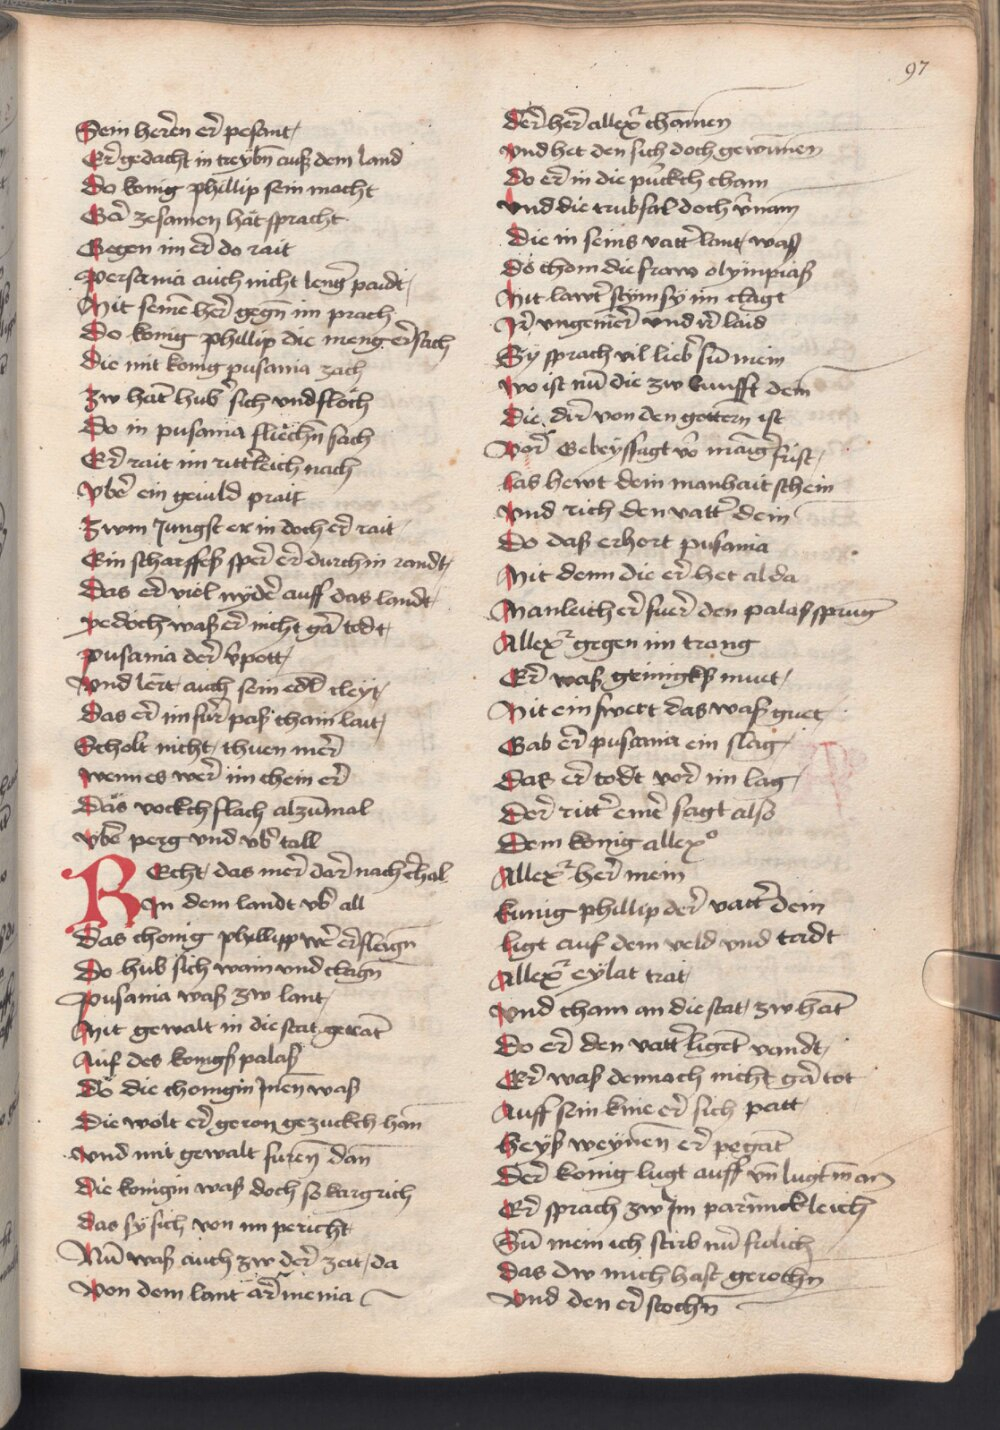 97
Sein heren er pesant
Er gedacht in treybn auß dem land
Do konig phillip sein macht
Gar zesamen hät spracht
Gegen im er do rait
Persania auch nicht leng paidt
Mit seinē her gegn im prach
Do konig phillip die meng ersach
Die mit konig pusania zach
Zw hāt hub sich vnd floch
Do in pusania fliechn sach
Er rait im rittleich nach
Vber ein geuild prait
Zwm Jungst er in doch er rait
Ein scharffes sper er durch in randt
Das er viel nyder auff das landt
yedoch was er nicht gar todt
pusania der v̄pott
Vnd lert auch sein edl cleyt
Das er im fur pas cham laut
Scholt nicht thuen mer
wenn es wer im chein er
Das vockch flach alzumal
Vber perg vnd vber tall
REcht das mer dar nach erhal
In dem landt vber all
Das chonig phyllipp wer erslagn
Do hub sich wain vnd clagn
pusania was zw lant
Mit gewalt in die stat gerāt
Auf des konigs palas
Do die chonigin Jnen was
Die wolt er geron gezuckch han
Vnd mit gewalt furen dan
Die konigin was doch so kargrich
das sy sich von im pericht
Nū was auch zw der zeit da
Von dem lant armenia
Der her allexr chamen
Vnd het den sich doch gewunnen
Do er in die puckch cham
Vnd die trubsal doch v̄nam
Die in seins vatter lant was
Do chom die fraw olympias
Mit lawter stym sy im clagt
Ir vngemer vnd ir laid
Sy sprach vil lieber sun mein
Wo ist nū die zw kunfft dein
Die dir von den gottern ist
Vor Gebeyssagt vō māiger frist
las hewt dein manhait schein
Vnd rich den vatter dein
Do das erhort pusania
Mit denn die er het alda
Manleich er fuer den palas sprung
Allexr gegen im trang
Er was grinigks muet
Mit ein swert das was guet
Gab er pusania ein slag
Das er todt vor im lag
Der ritter einer sagt also
Dem konig allexo
Allexr her mein
kunig phillip der vatter dein
ligt auf dem veld vnd todt
Allexr eylat trat
Vnd cham an die stat zw hāt
Do er den vatter ligēt vandt
Er was dennoch nicht gar tot
Auff sein knie er sich patt
heys weynen er pegāt
Der konig lugt auff vn̄ lugt in an
Er sprach zw Im parmickleich
Sū mein ich stirb nū frolich
das dw mich hast gerochn
Vnd den erstochn